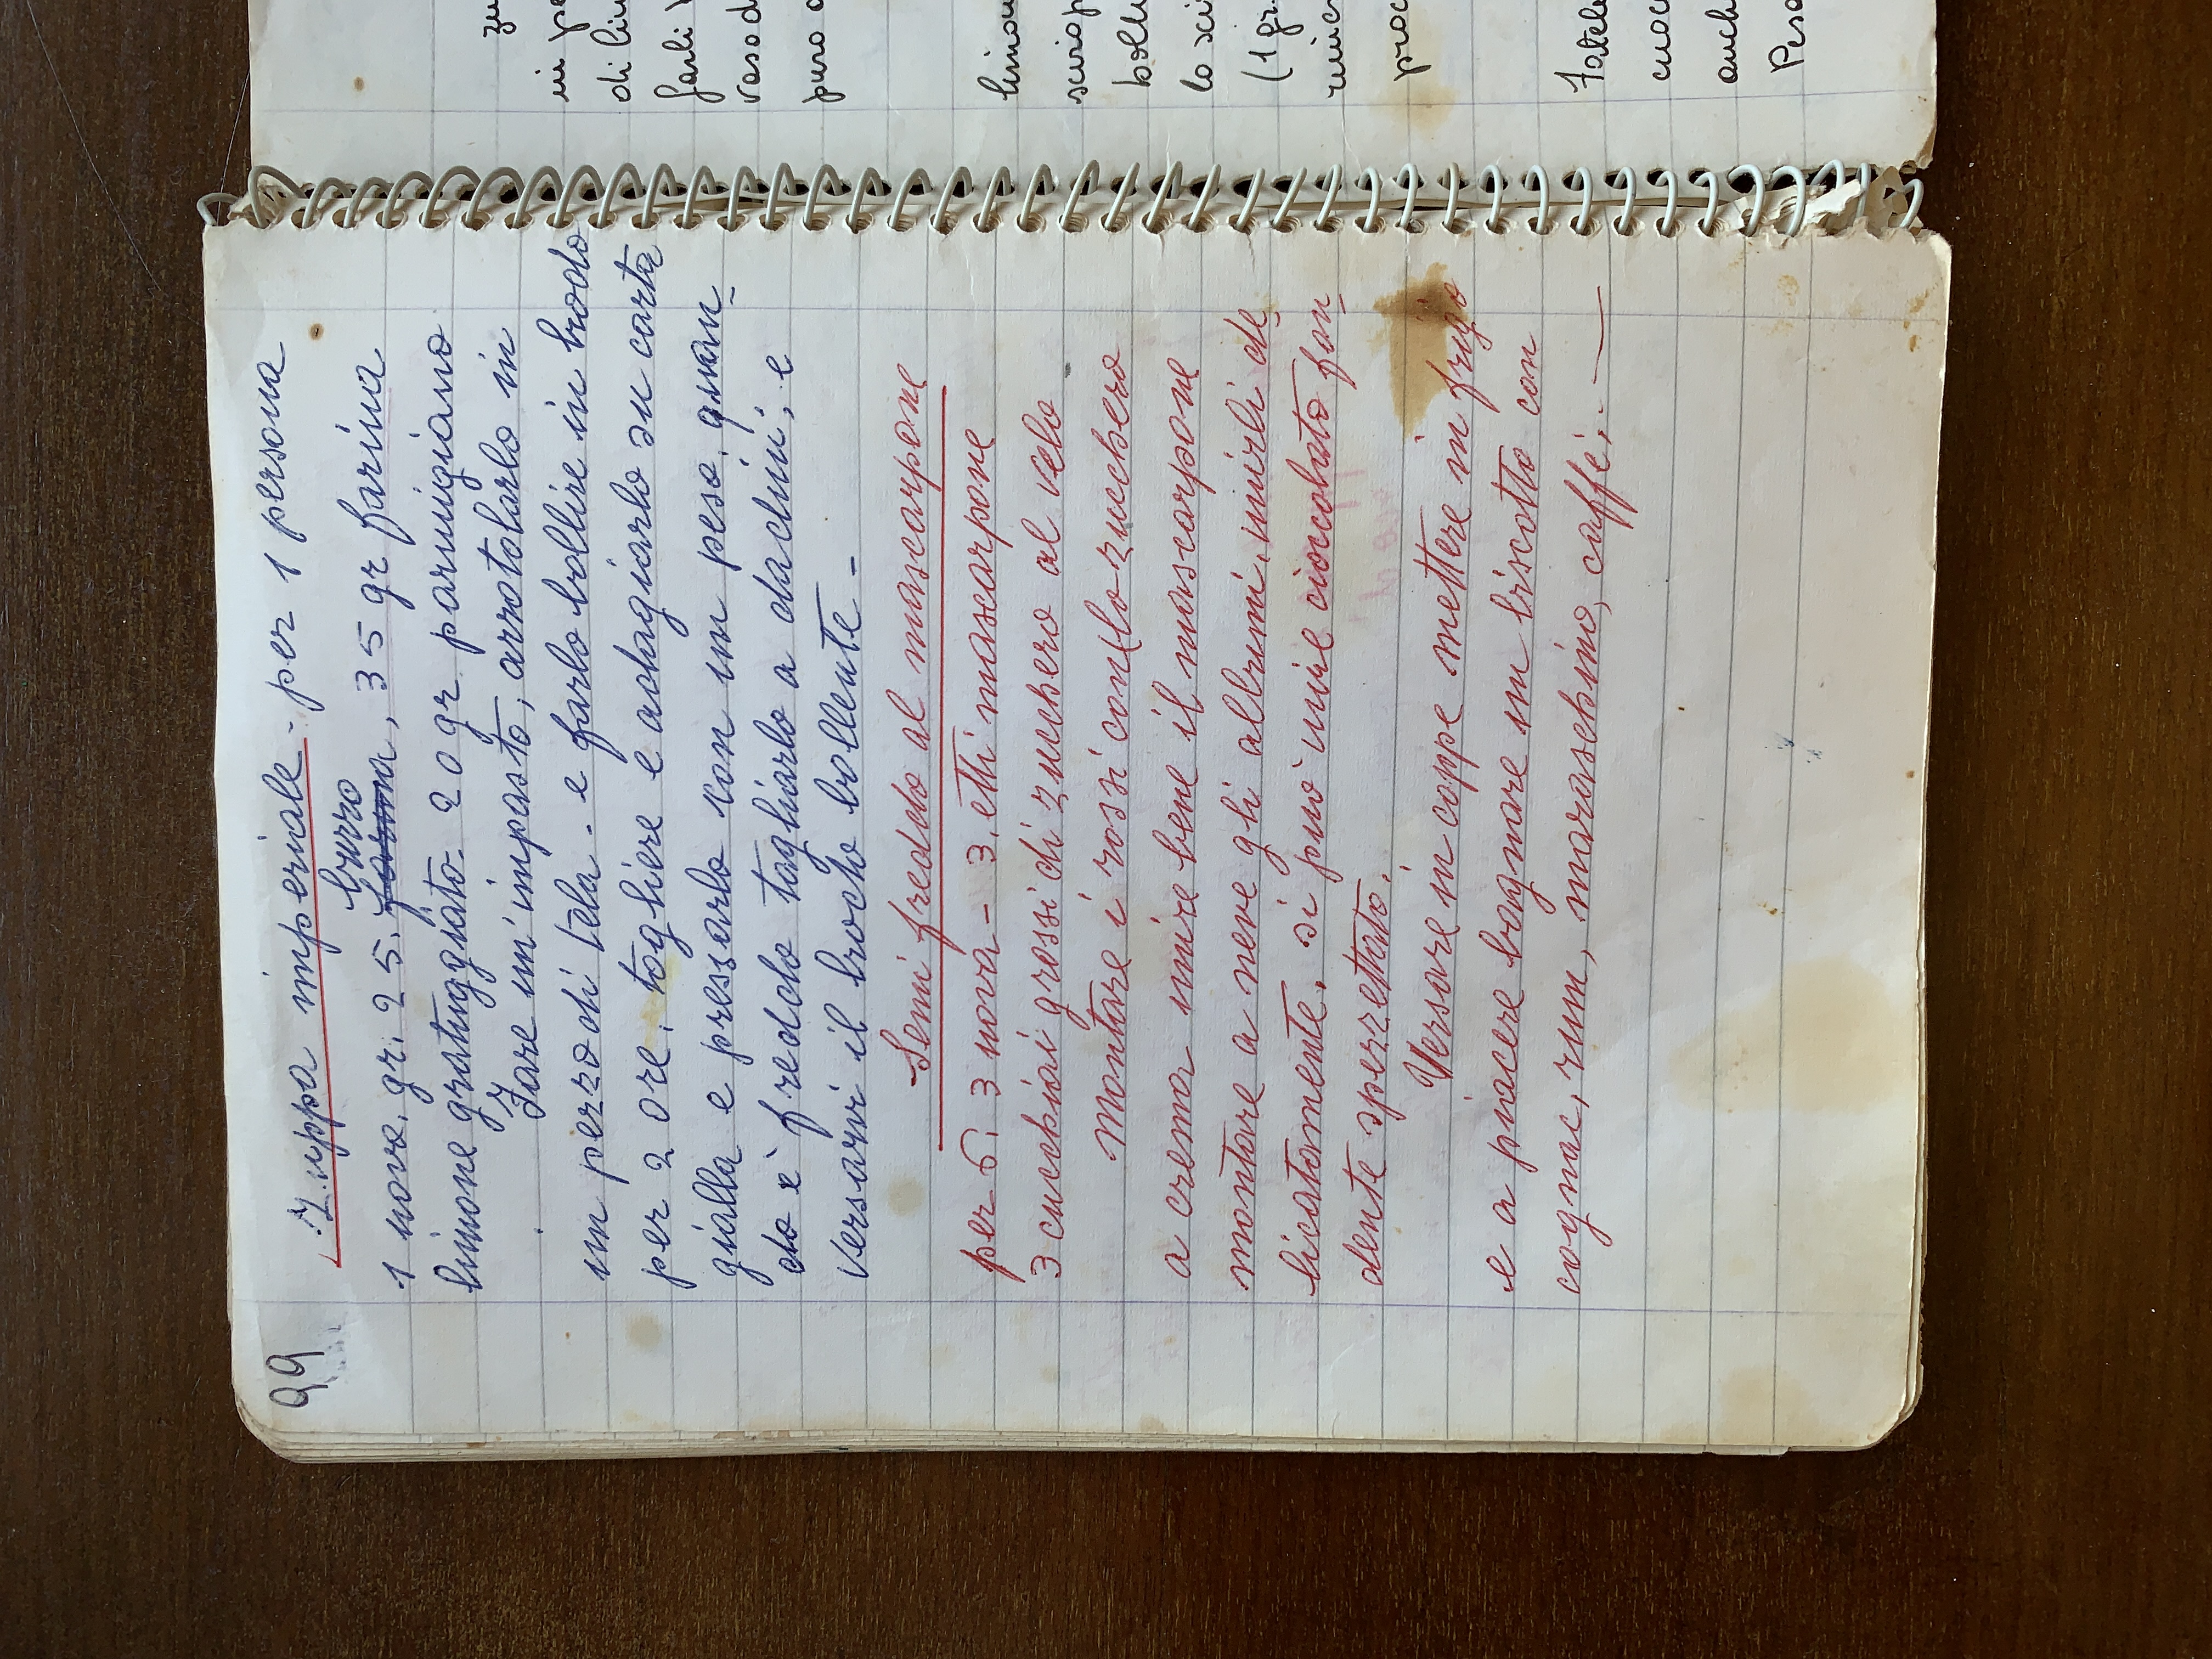 99
Zuppa imperiale - per 1 persona
burro
1 uovo. gr. 25. farina, 35 gr farina
limone grattuggiato. 20 gr parmigiano
Fare un'impasto, arrotolarlo in
un pezzo di tela - e farlo bollire in brodo
per 2 ore, togliere e adagiarlo su carta
gialla e pressarlo con un peso, quan-
do è freddo tagliarlo a dadini, e
versarvi il brodo bollente -
Semi freddo al mascarpone
per 6. 3 uova - 3. etti mascarpone
3 cucchiai grossi di zucchero al velo
Montare i rossi con lo zucchero
a crema unire bene il mascarpone
montare a neve gli albumi, unirli de-
licatamente. si può unire cioccolato fon-
dente spezzettato.
Versare in coppe mettere in frigo
e a piacere bagnare un biscotto con
cognac, rum, maraschino, caffè,. —
in pe
di lim
farli
vaso d
puro
limon
scirop
lo sci
(1 gr.
proc
Fatele
cuoc
anch
Peso